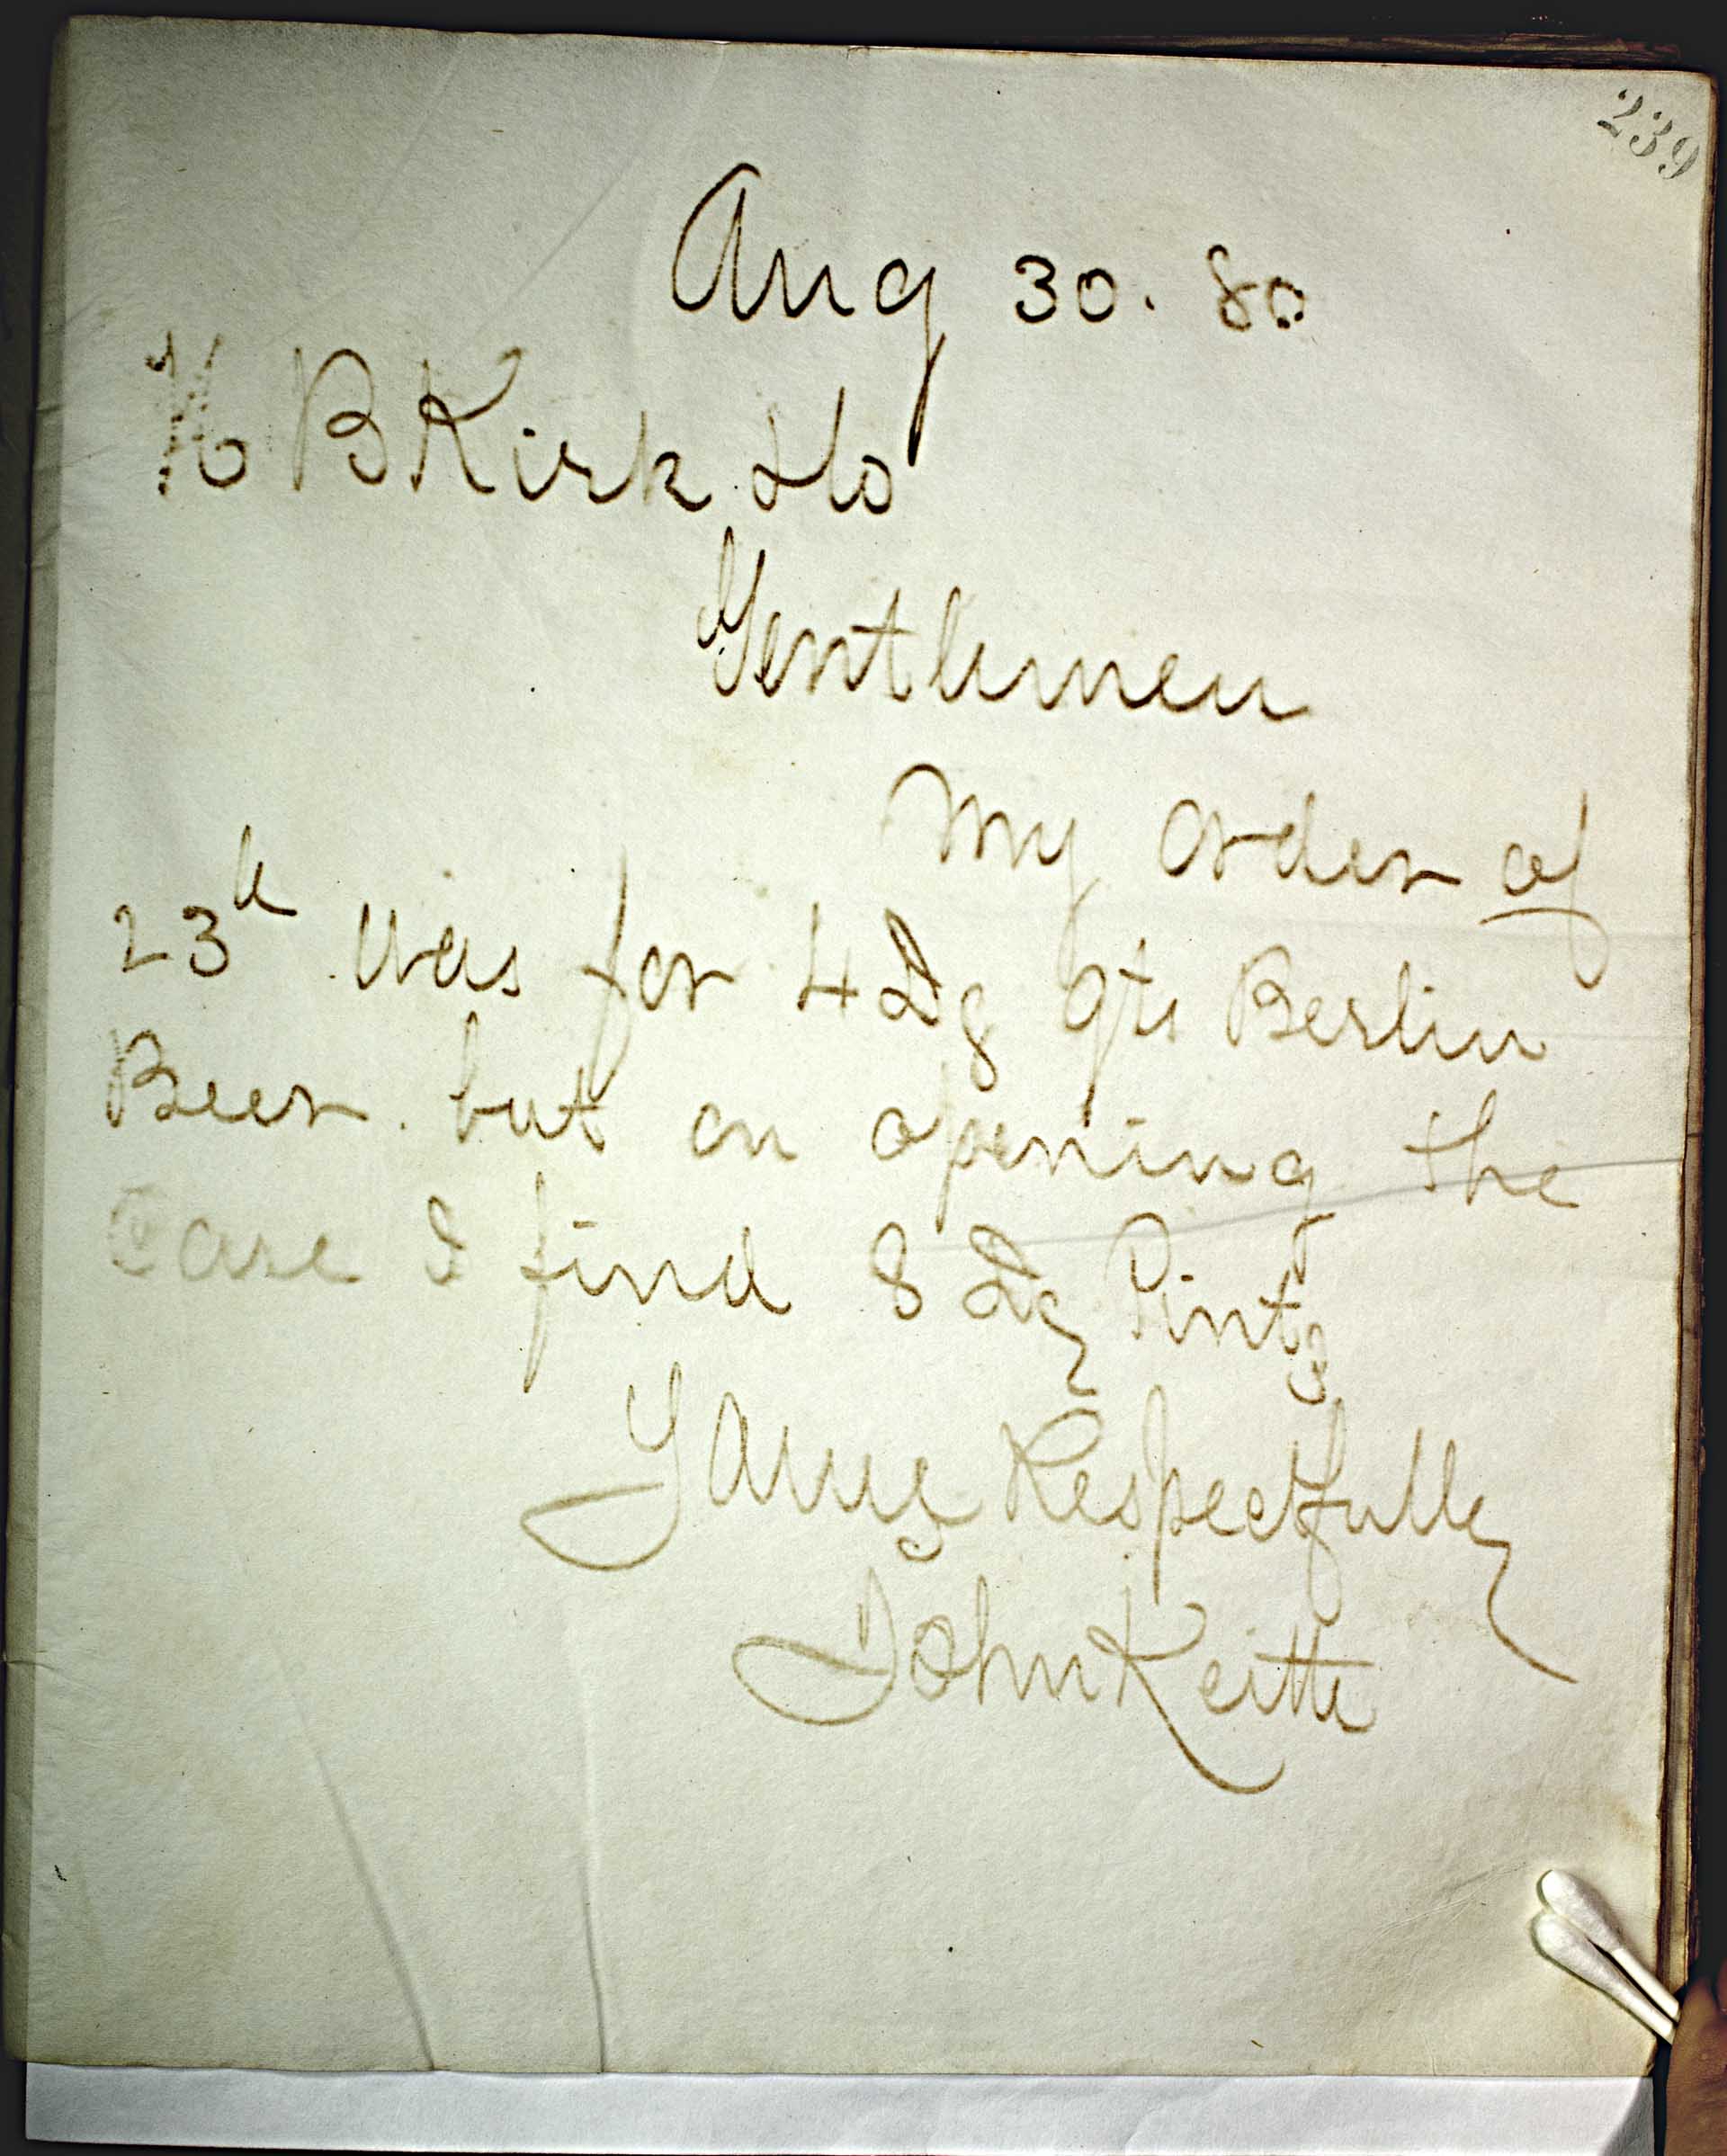 239
Aug 30. 80
H B Kirk & Co
Gentlemen
My order of
23d was for 4 Dz qts Berlin
Beer. but on opening the
Case I find 8 Dz Pints
Yours Respectfully
John Keitt